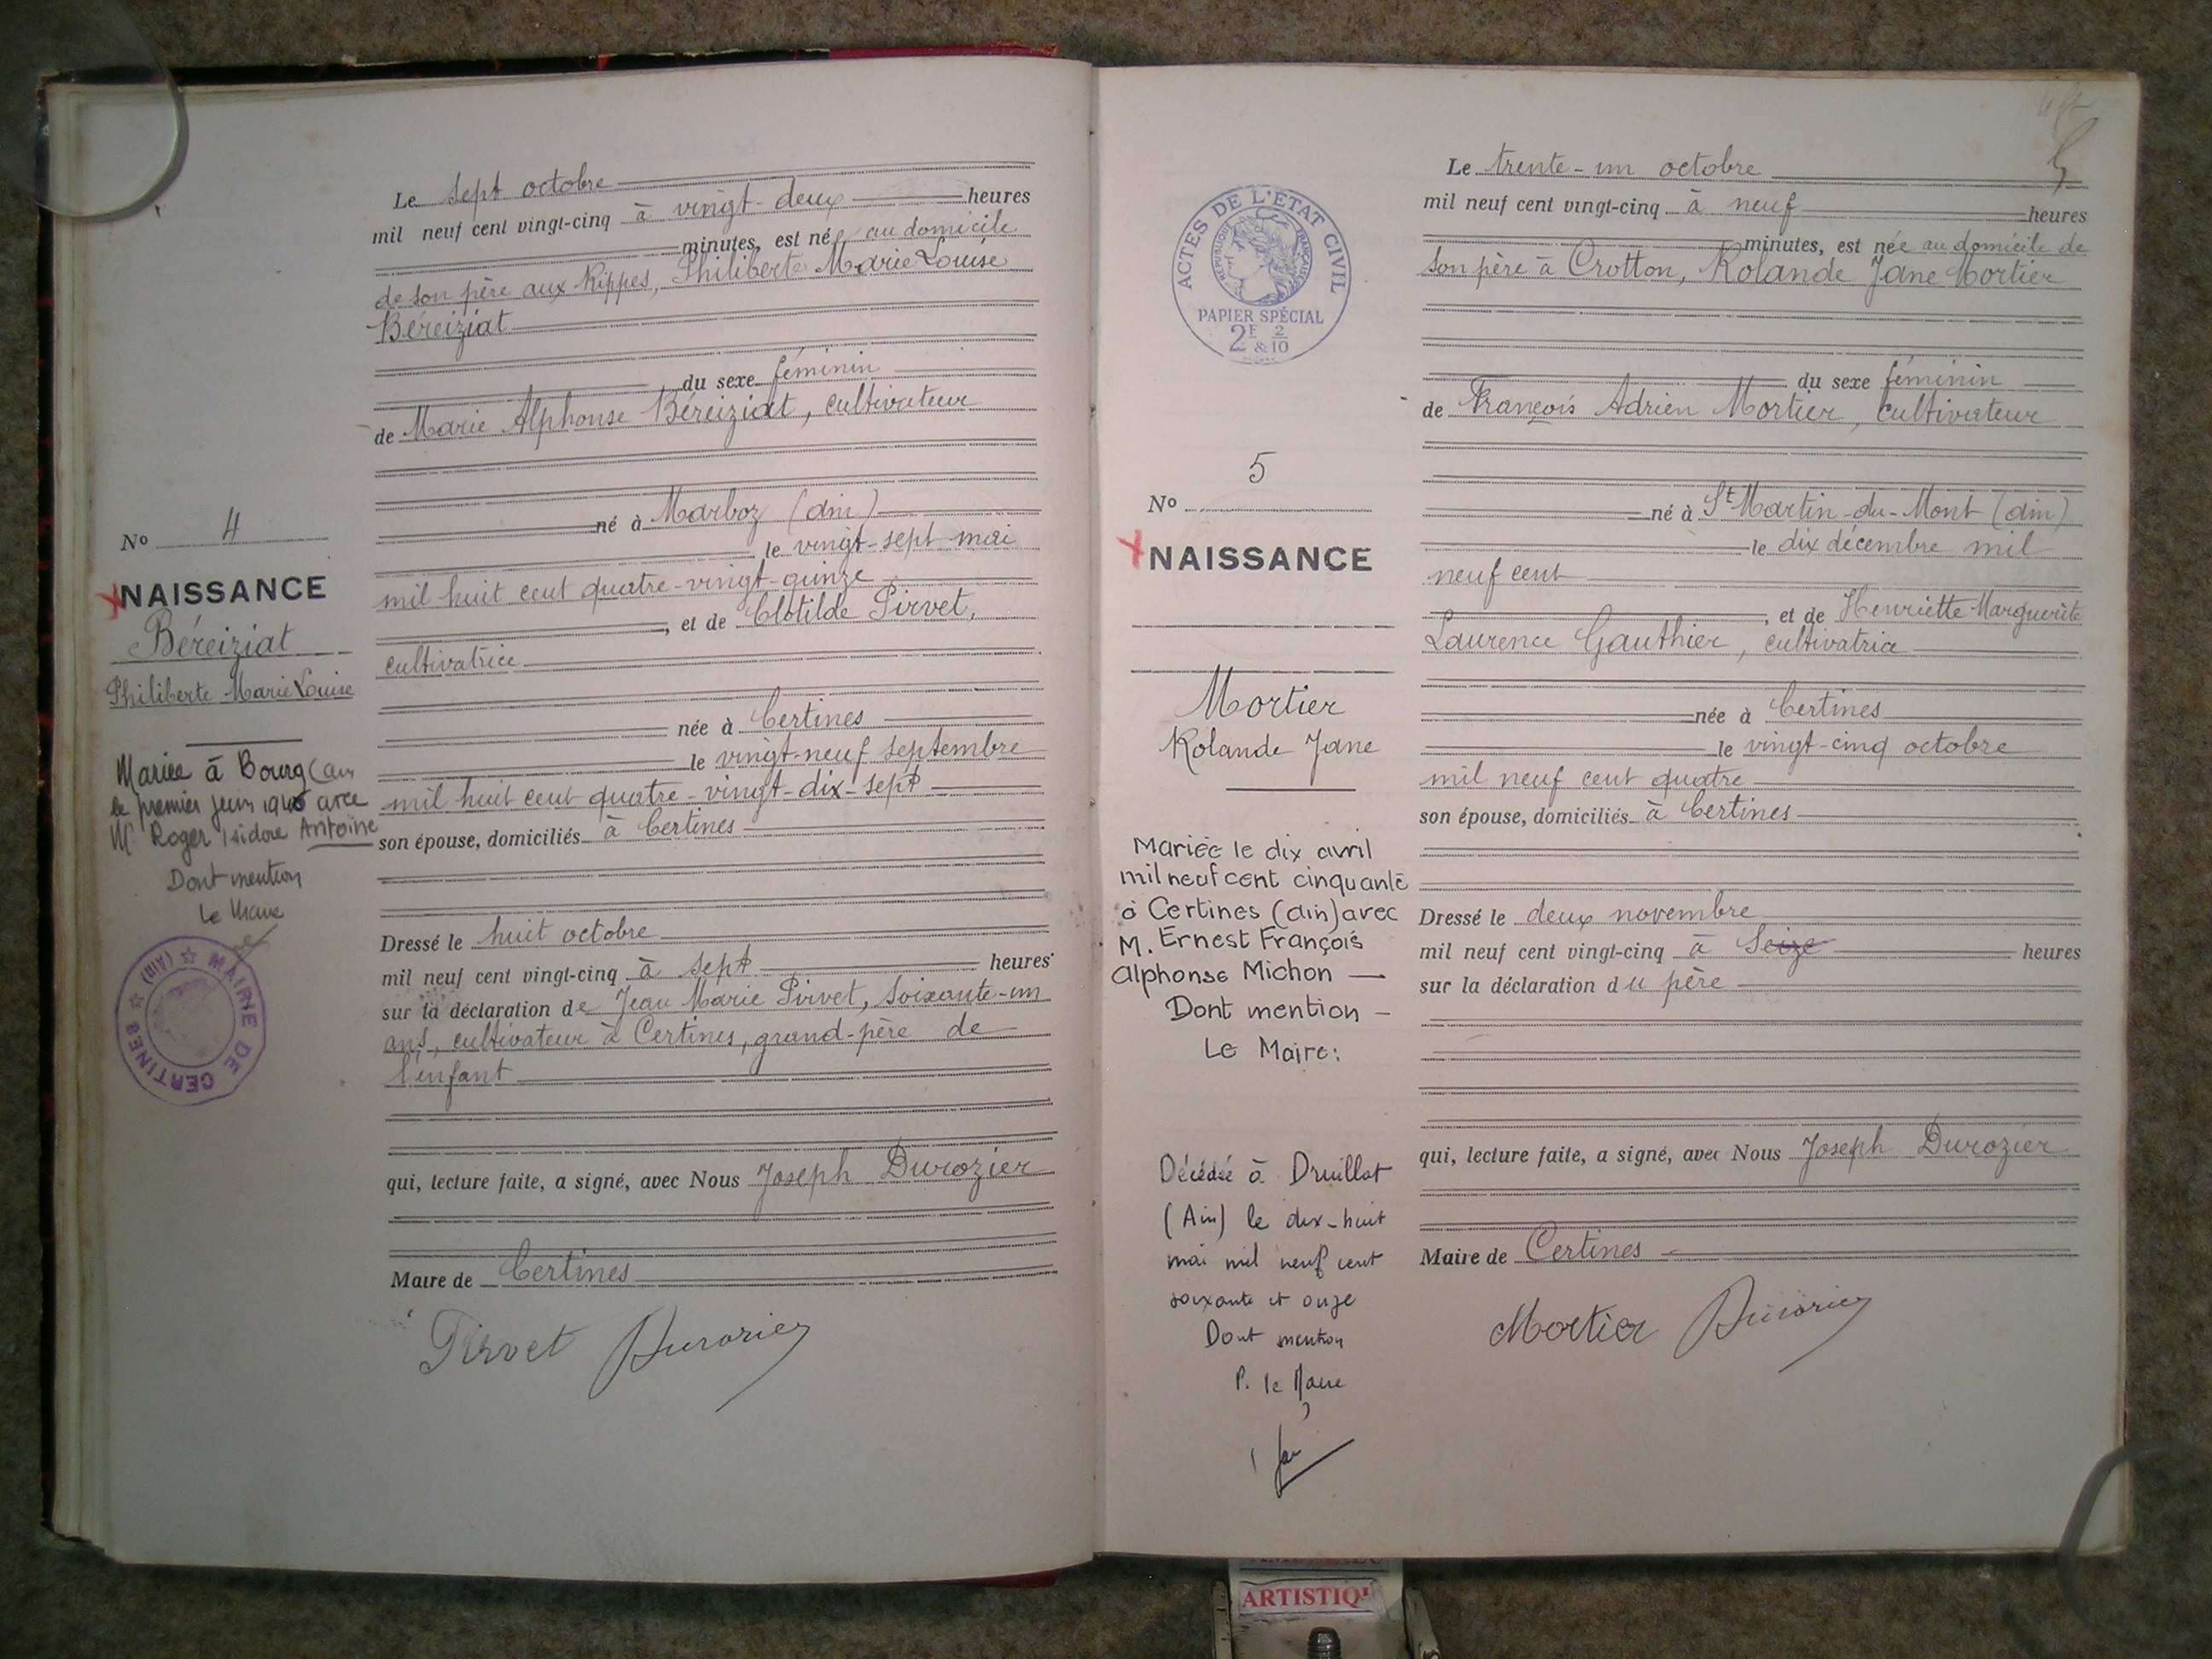 Le sept octobre
mil neuf cent vingt-cinq à vingt-deux heures
minutes, est née au domicile
de son père aux Rippes, Philiberte Marie Louise
Béreiziat
du sexe féminin
de Marie Alphonse Béreiziat, cultivateur
né à Marboz (Ain)
le vingt-sept mai
mil huit cent quatre-vingt-quinze
, et de Clotilde Pirvet,
cultivatrice
née à Certines
le vingt-neuf septembre
mil huit cent quatre-vingt-dix-sept
son épouse, domiciliés à Certines
Dressé le huit octobre
mil neuf cent vingt-cinq à sept heures
sur la déclaration de Jean Marie Pirvet, soixante-un
ans, cultivateur à Certines, grand-père de
l'enfant
qui, lecture faite, a signé, avec Nous Joseph Durozier
Maire de Certines
Pirvet Durozier
No 4
NAISSANCE
Béreiziat
Philiberte Marie Louise
Mariée à Bourg (Ain
le premier juin avec
M Roger Isidore Antoine
Dont mention
Le Maire
MAIRIE DE CERTINES (AIN)
5
Le trente-un octobre
mil neuf cent vingt-cinq à neuf heures
minutes, est née au domicile de
son père à Crotton, Rolande Jane Mortier
du sexe féminin
de François Adrien Mortier, cultivateur
né à St Martin-du-Mont (Ain)
le dix décembre mil
neuf cent
, et de Henriette Marguerite
Laurence Gauthier, cultivatrice
née à Certines
le vingt-cinq octobre
mil neuf cent quatre
son épouse, domiciliés à Certines
Dressé le deux novembre
mil neuf cent vingt-cinq à Seize heures
sur la déclaration du père
qui, lecture faite, a signé, avec Nous Joseph Durozier
Maire de Certines
Mortier Durozier
ACTES DE L'ETAT CIVIL
REPUBLIQUE FRANÇAISE
PAPIER SPÉCIAL
2F & 2/10
No 5
NAISSANCE
Mortier
Rolande Jane
Mariée le dix avril
mil neuf cent cinquante
à Certines (Ain) avec
M. Ernest François
Alphonse Michon —
Dont mention —
Le Maire:
Décédée à Druillat
(Ain) le dix-huit
mai mil neuf cent
soixante et onze
Dont mention
P. le Maire
ARTISTIQ